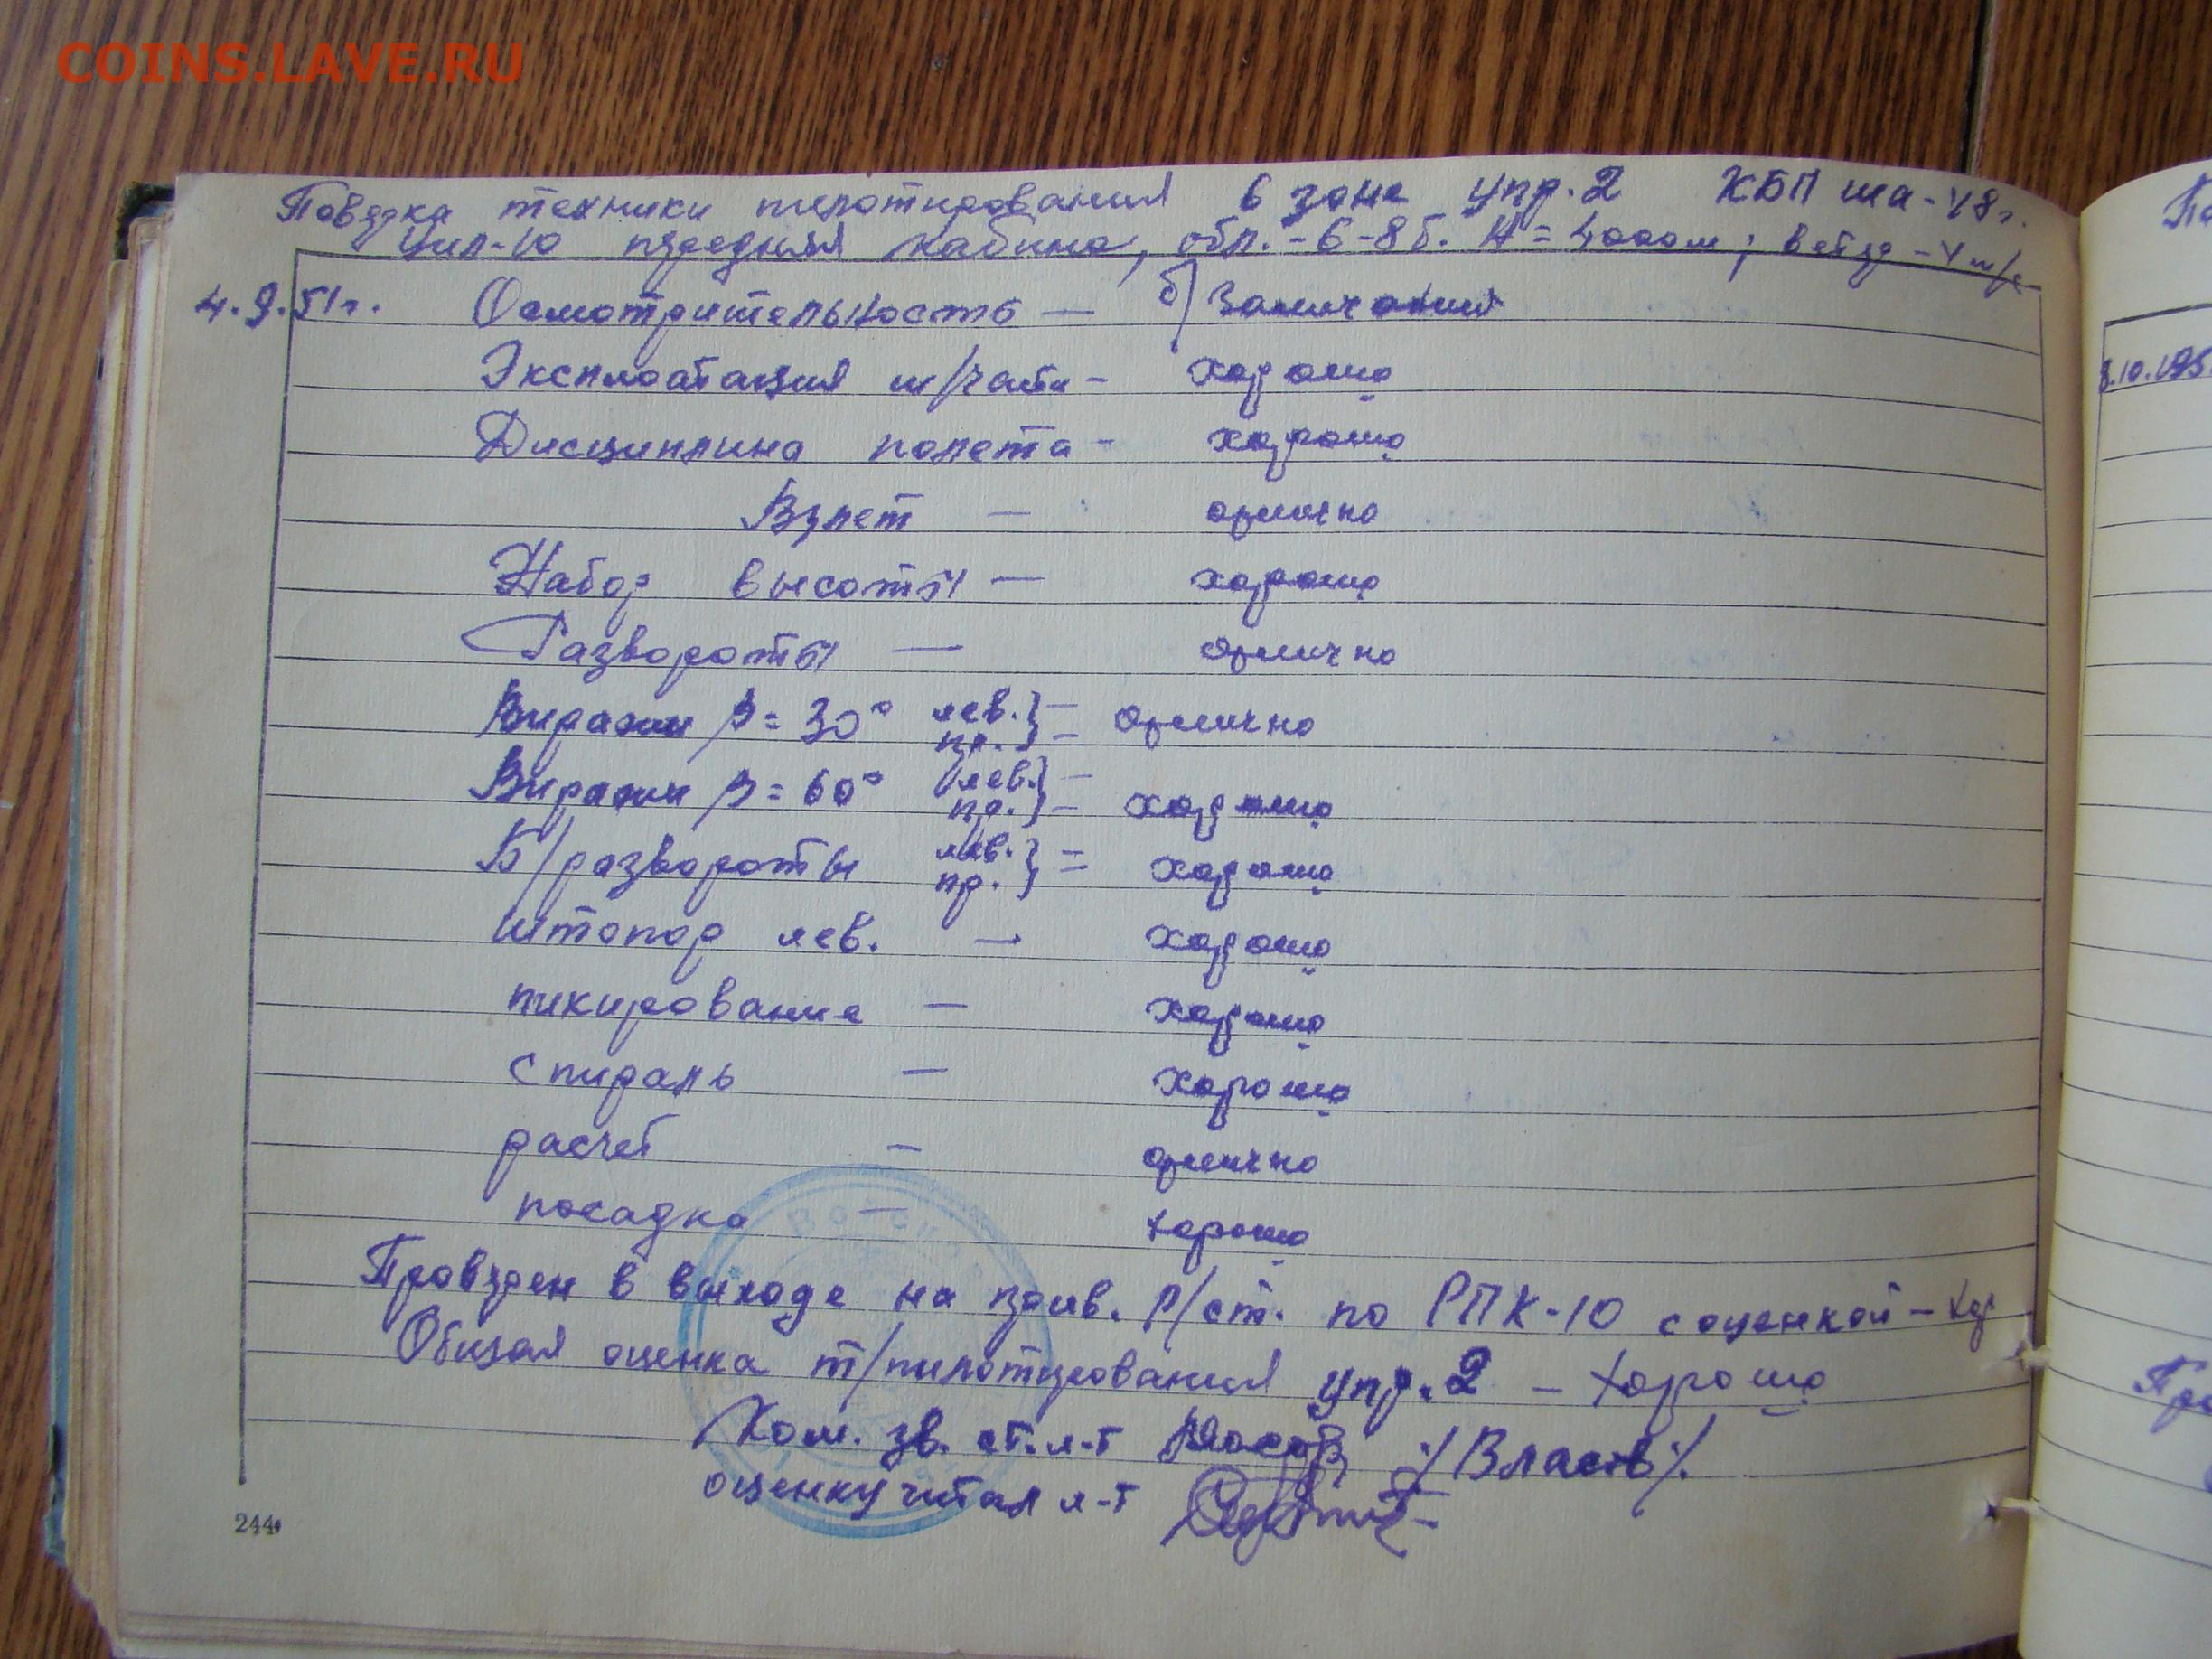 COINS.LAVE.RU
Поверка техники пилотирования в зоне упр. 2 КБП ша-48 г.
Уил-10 передняя кабина, обл. - 6-8 б. Н = 4000 м; ветер - 4 м/с
4.9.51 г. Осмотрительность — б/замечаний
Эксплоатация м/части - хорошо
Дисциплина полета - хорошо
Взлет — отлично
Набор высоты — хорошо
Развороты — отлично
Виражи β = 30° лев. пр. } = отлично
Виражи β = 60° лев. пр. } = хорошо
Б/развороты лев. пр. } = хорошо
штопор лев. — хорошо
пикирование — хорошо
спираль — хорошо
расчет — отлично
посадка — хорошо
Проверен в выходе на прив. р/ст. по РПК-10 с оценкой - хор
Общая оценка т/пилотирования упр. 2 — хорошо
Ком. зв. ст. л-т /Власов/.
оценку читал л-т
244
8.10.195